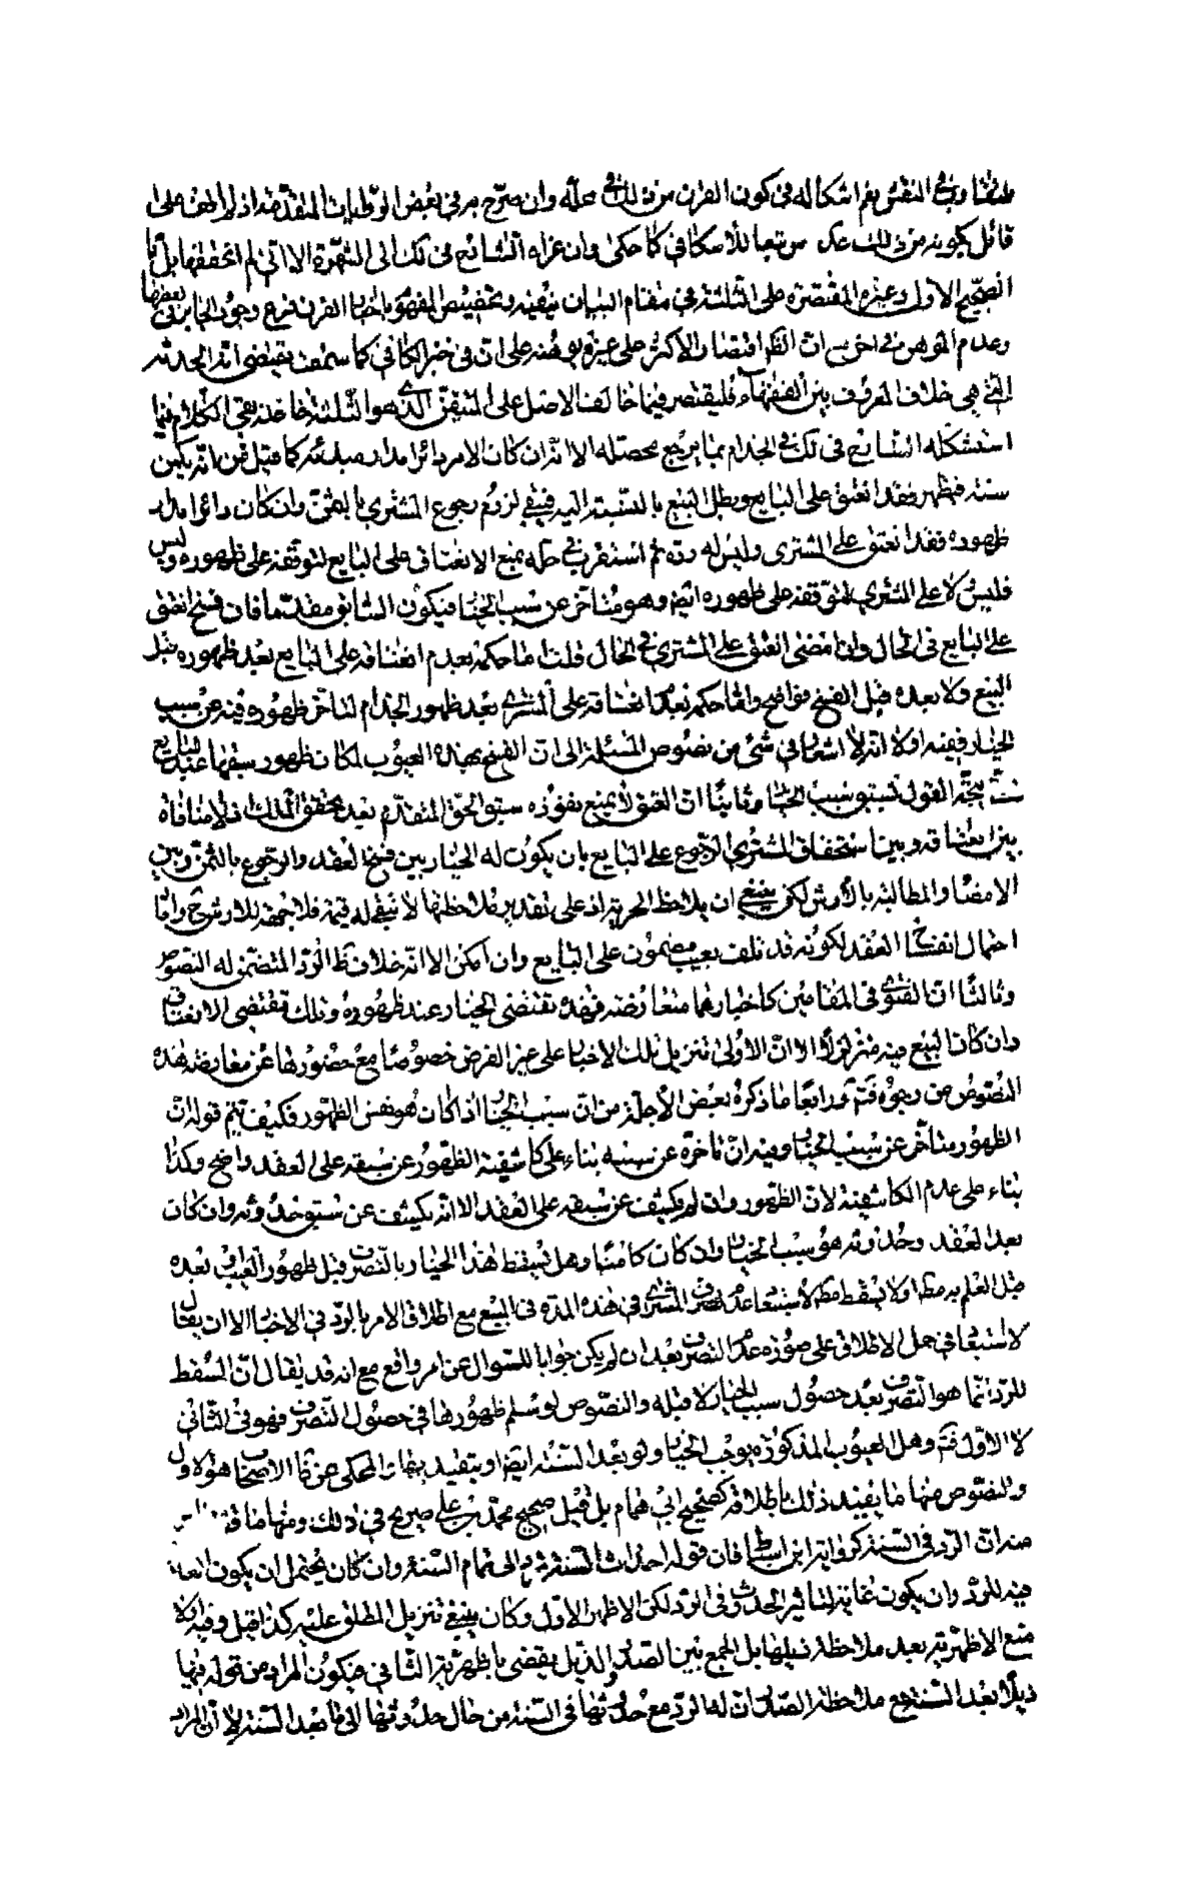 طلقنا وبقي النقض نعم اشكاله في كون القرن من ذلك في محله وان صرح به في بعض الروايات المتقدمة اذ لم اطلع على
قائل بكونه من ذلك عدا من تبعا للاسكافي كما حكى وان عزاه الشايع في تلك الى الشهرة الا اني لم اتحققها بل
الصحيح الاول وغيره المقتصرة على الثلثة في مقام البيان ينفيه وتخصيص المفهوم باخبار القرن فرع وجود الجابر في بعضها
وعدم الموهن في اخر بل ان الظاهر اقتصار الاكثر على غيره يوهنه على ان في خبر الكافي كما سمعت يقتضي انه الحدبة
التي هي خلاف المعروف بين الفقهاء فليقتصر فيما خالف الاصل على المتيقن الذي هو الثلثة خاصة بقي الكلام فيما
استشكله الشايع في لك في الجذام بما يرجع محصله الا انه ان كان الامر دائرا مدار مبدئه كما قيل من انه يكمن
سنة فيظهر فقد انعتق على البايع وبطل البيع بالنسبة اليه فينبغي لزوم رجوع المشتري بالثمن وان كان دائرا مدار
ظهوره فقد انعتق على المشتري وليس له رده ثم استقرب في حله بمنع الانعتاق على البايع لتوقفه على ظهوره وليس
فليس لا على المشتري لتوقفه على ظهوره ايضا وهو متأخر عن سبب الخيار فيكون السابق مقدما فان فسخ انعتق
على البايع في الحال وان امضى انعتق على المشتري في الحال قلت اما حكمه بعدم انعتاقه على البايع بعد ظهوره قبل
البيع ولا بعده قبل الفسخ فواضح واما حكمه بعدم انعتاقه على المشتري بعد ظهور الجذام لتأخر ظهوره فيه عن سبب
الخيار ففيه اولا انه لا اشعار في شئ من نصوص المسئلة الى ان الفسخ بهذه العيوب لمكان ظهور سبقها عند البايع
يتجه القول بسبق سبب الخيار وثانيا ان العتق لا يمنع نفوذه سبق الحق المتقدم بعد تحقق الملك اذ لا منافاة
بين انعتاقه وبين استحقاق المشتري الرجوع على البايع بان يكون له الخيار بين فسخ العقد والرجوع بالثمن وبين
الامضاء والمطالبة بالارش لكن ينبغي ان يلاحظ الحرية اذ على تقدير ملاحظتها لا تبقى له قيمة فلا جهة للارش ح واما
احتمال انفساخ العقد لكونه قد تلف بعيب مضمون على البايع وان امكن الا انه خلاف ظ الرد المتضمن له النصوص
وثالثا ان الفتوى في المقامين كاخبارهما متعارضة فهذه تقتضي الخيار عند ظهوره وتلك تقتضي الانعتاق
وان كان البيع فيه متزلزلا الا ان الاولى تنزيل تلك الاخبار على غير الفرض خصوصا مع حضورها عن معارضة هذه
النصوص من وجوه فتأمل ورابعا ما ذكره بعض الاجلة من ان سبب الخيار اذا كان هو نفس الظهور فكيف يتم قوله ان
الظهور متأخر عن سبب الخيار وفيه ان تأخره عن سببه بناء على كاشفية الظهور عن سبقه على العقد واضح وكذا
بناء على عدم الكاشفية لان الظهور وان لم يكشف عن سبقه على العقد الا انه يكشف عن سبق حدوثه وان كان
بعد العقد وحدوثه هو سبب الخيار وان كان كامنا وهل يسقط هذا الخيار بالتصرف قبل ظهور العيب او بعده
قبل العلم به مطلقا او لا يسقط مطلقا لاستبعاد عدم تصرف المشتري في هذه المدة في المبيع مع اطلاق الامر بالرد في الاخبار الا ان يقال
لا استبعاد في حمل الاطلاق على صورة عدم التصرف بعد ان لم يكن جوابا للسؤال عن امر واقع مع انه قد يقال ان المسقط
للرد انما هو التصرف بعد حصول سبب الخيار لا قبله والنصوص لو سلم ظهورها في حصول التصرف فهو في الثاني
لا الاول فتأمل وهل العيوب المذكورة يوجب الخيار ولو بعد السنة ايضا او يتقيد بها المحكى عن ظ الاصحاب هو الاول
والنصوص منها ما يفيد ذلك باطلاقه كصحيح ابي همام بل قيل صحيح محمد بن علي صريح في ذلك ومنها ما قد
منه ان الرد في السنة كرواية ابن اسباط فان قوله احداث السنة ترد الى تمام السنة وان كان يحتمل ان يكون الغاية
فيه للرد وان يكون غاية لتأثير الحدث وفي الرد لكن الاظهر الاول وكان ينبغي تنزيل المطلق عليه كذا قيل وفيه اولا
منع الاظهرية بعد ملاحظة ذيلها بل الجمع بين الصدر والذيل يقضي باظهرية الثاني فيكون المراد من قوله فيها
ذيلا بعد السنة مع ملاحظة الصدر ان له الرد مع حدوثها في السنة من حال حدوثها الى ما بعد السنة لا ان المراد